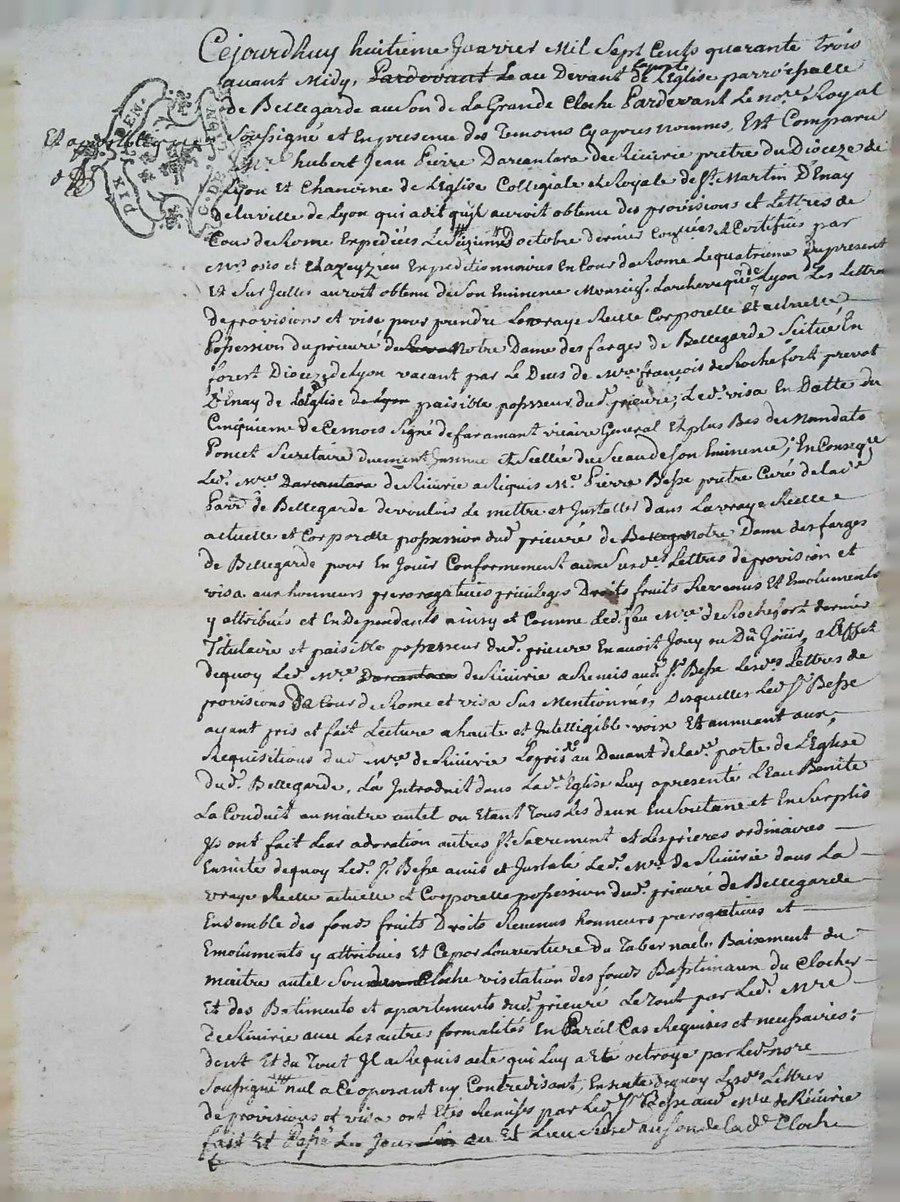 Cejourdhuy huitième Janvier Mil Sept Cents quarante trois
avant Midy, Pardevant Le au Devant de la porte de L'Eglise parroissialle
de Bellegarde au Son de La Grande Cloche Pardevant Le nore Royal
Soussigné et En presence des Temoins Cy apres nommés, Est Comparu
Mre hubert Jean Pierre Darcantara de Riuirie pretre du Dioceze de
Lyon Et Chanoine de L'Eglise Collegiale et Royale de St Martin D'Enay
de la ville de Lyon qui a dit qu'il auroit obtenu des provisions et Lettres de
Cour de Rome Expediées Le octobre dernier Certifiées par
Mrs et Expeditionnaires En Cour de Rome Le quatrieme du present
Et Sur Jcelles auroit obtenu de Son Eminence Monseigr Larcheveque de Lyon Les Lettres
de provisions et visa pour prendre La vraye Réelle Corporelle et actuelle
Possession du prieuré de Notre Dame des farges de Bellegarde Scitué En
forest Dioceze de Lyon vacant par Le Deces de Mre françois de Rochefort prevot
D'Enay de L'Eglise de Lyon paisible possesseur dud. prieuré, Led. visa En Datte du
Cinquieme de Ce mois Signé de faramant vicaire General Et plus Bas du Mandato
Poncet Secretaire duement et Scellée du Sceau de son Eminence; En Conseqce
Led. Mre Darcantara de Riuirie a Requis Me Pierre Besse pretre Curé de lad.
Parr. de Bellegarde de vouloir le mettre et Jnstaller dans La vraye Réelle
actuelle et Corporelle possession dud. prieuré de Bellega Notre Dame des farges
de Bellegarde pour En Jouir Conformement aux Susd. Lettres de provision et
visa aux honneurs prerorogatives privileges Droits fruits Revenus Et Emoluments
y attribués et En Dependants ainsy et Comme Led. feu Mre de Rochefort dernier
Titulaire et paisible possesseur dud. prieuré En auoit Jouy ou Dû Joüir, a L'Effet
dequoy Led. Mre Darcantara de Riuirie a Remis aud. Sr Besse Lesd. Lettres de
provisions De Cour de Rome et visa Sus Mentionnés, Desquelles Led. Sr Besse
ayant pris et fait Lecture a haute et Jntelligible voix Et annuant aux
Requisitions dud. Mre de Riuirie La pris au Devant de lad. porte de L'Eglise
dud. Bellegarde, L'a Jntroduit dans Lad. Eglise Luy a presenté L'Eau Benite
La Conduit au maitre autel ou Etant Tous Les deux En Soutane et En Surplis
Jls ont fait Leur adoration au tres St Sacrement et Les prieres ordinaires
Ensuite dequoy Led. Sr Besse a mis et Jnstalé Led. Mre de Riuirie dans La
vraye Réelle actuelle et Corporelle possession dud. prieuré de Bellegarde
Ensemble des fonds fruits Droits Revenus honneurs prerogatives et
Emoluments y attribués Et Ce par L'ouverture du Tabernacle, Baisement du
maitre autel Son Cloche visitation des fonds Baptimaux du Clocher
Et des Batiments et apartements dud. prieuré Le Tout par Led. Mre
de Riuirie avec Les autres formalités En Pareil Cas Requises et necessaires;
dont Et du Tout Jl a Requis acte qui Luy a Eté octroyé par Led. nore
Soussigné nul a Ce oposant ny Contredisant, Ensuite dequoy Lesd. Lettres
de provisions et visa ont Etés Remises par Led. Sr Besse aud. Mre de Riuirie
fait Et Passé Les Jour an Et Lieu Susd. au son de lad. Cloche
Et
DIX DEN.
G. DE LYON